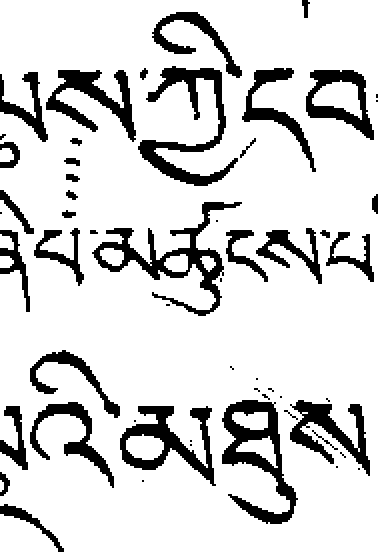 ལུས་ཀྱི་དབ
པ་མཚུངས་པ
འི་མཐུས